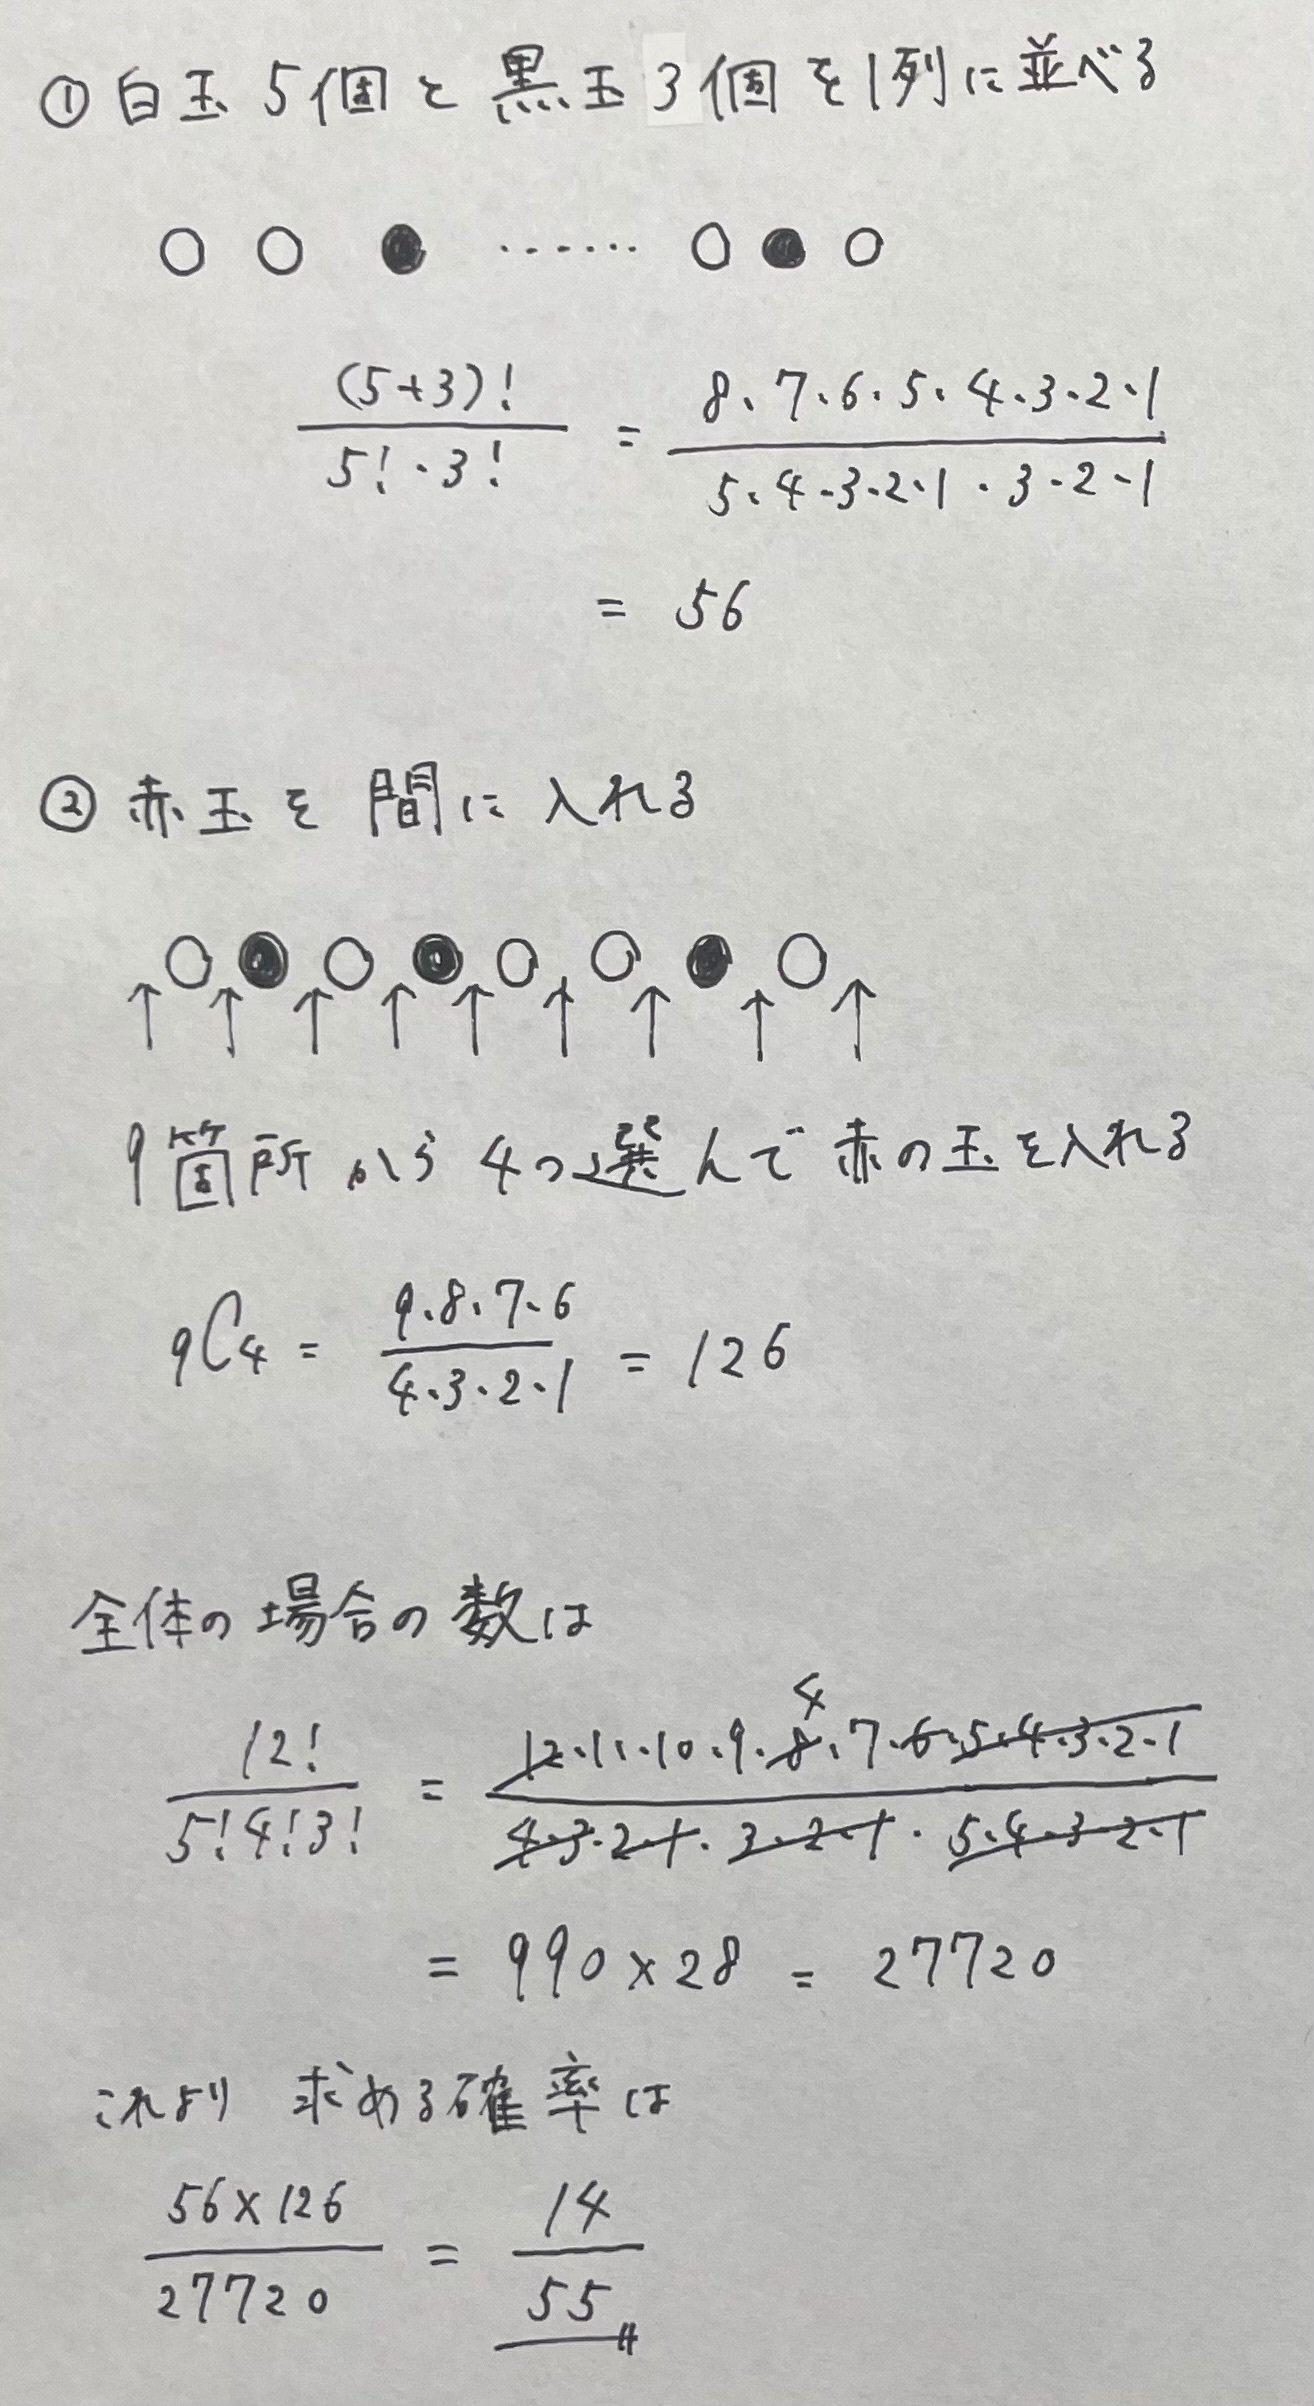 ① 白玉5個と黒玉3個を1列に並べる
(5+3)! / 5!・3! = 8・7・6・5・4・3・2・1 / 5・4・3・2・1・3・2・1
= 56
② 赤玉を間に入れる
↑ ↑ ↑ ↑ ↑ ↑ ↑ ↑ ↑
9箇所から4つ選んで赤の玉を入れる
9C4 = 9・8・7・6 / 4・3・2・1 = 126
全体の場合の数は
4
12! / 5!4!3! = 12・11・10・9・8・7・6・5・4・3・2・1 / 4・3・2・1・3・2・1・5・4・3・2・1
= 990×28 = 27720
これより 求める確率は
56×126 / 27720 = 14 / 55